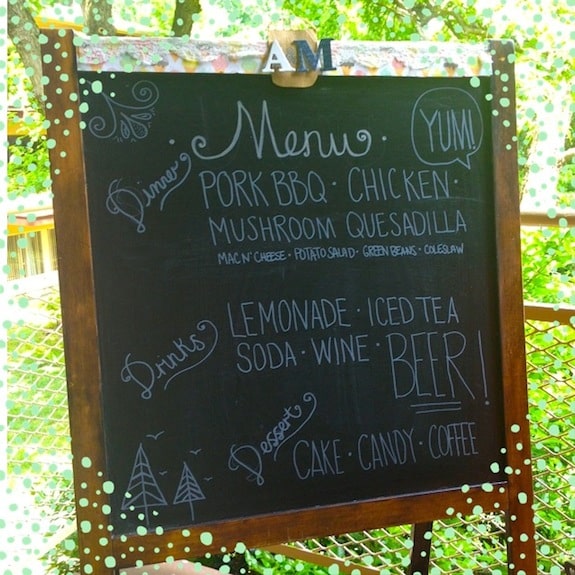 AM
Menu
YUM!
Dinner
PORK BBQ · CHICKEN ·
MUSHROOM QUESADILLA
MAC N' CHEESE · POTATO SALAD · GREEN BEANS · COLESLAW
Drinks
LEMONADE · ICED TEA
SODA · WINE · BEER!
Dessert
CAKE · CANDY · COFFEE